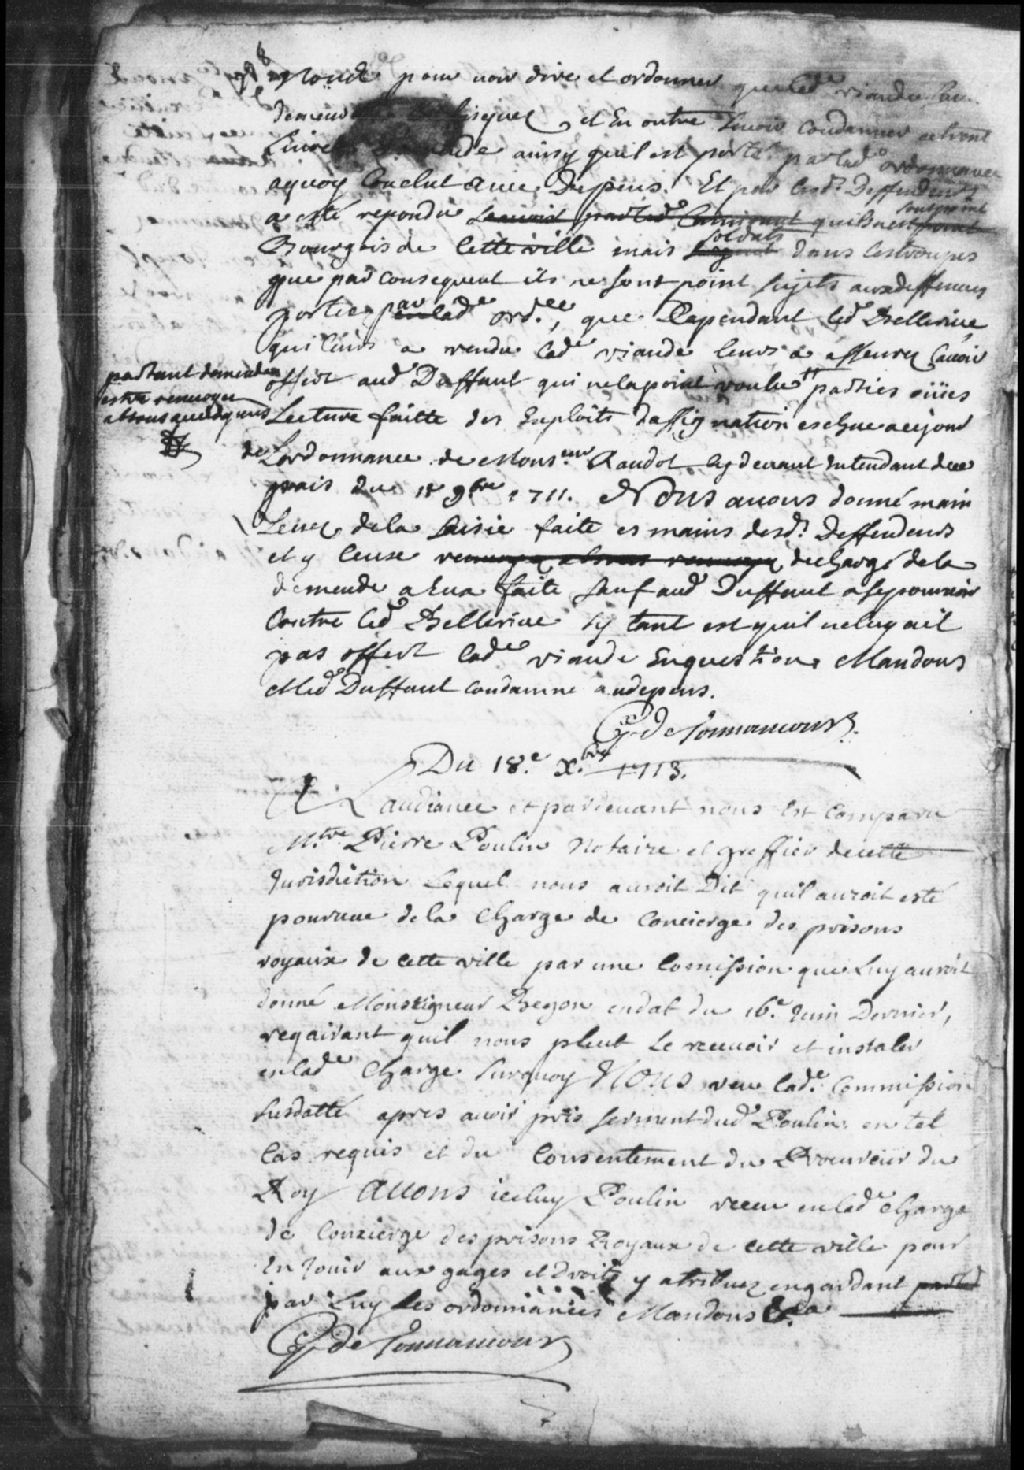 pour voir dire et ordonner que lad.e viande
demeurera et en outre se voir condamner
ainsy quil est porté par lad.e ordonnance
aquoy conclut avec depens. Et par lesd. Deffendeurs
a esté repondu quils ne sont point
Bourgeois de cette ville mais soldats dans les troupes
que par consequent ils ne sont point sujets aux deffences
portées par lad.e ord.ce, que cependant led. Bellerive
qui leurs a vendu lad.e viande leurs a asseuré l'avoir
offert aud. Duffaut qui ne la point voulue parties oüies
partant demandent
estre renvoyer
absous quelques
Lecture faitte des Exploits dassignation eschue a ce jour
de Lordonnance de Mons.eur Raudot cy devant Intendant de ce
pais du 9bre 1711. Nous avons donné main
Levée de la saisie faite es mains desd. Deffendeurs
et y ceux dechargé de la
demende a eux faite sauf aud. Duffaut a se pourvoir
contre led. Bellerive sy tant est quil ne luy ait
pas offert lad.e viande en question. Mandons
et led. Duffaut condamné aux depens.
G de Tonnancour
Du 18.e X.bre 1713.
A Laudiance et pardevant nous Est comparu
M.tre Pierre Poulin Notaire et greffier de cette
Jurisdiction Lequel nous auroit Dit quil auroit esté
pourvue de la charge de concierge des prisons
royaux de cette ville par une Comission que Luy auroit
donné Monseigneur Begon en dat du 16.e Juin Dernier,
requirant quil nous pleut Le recevoir et instaler
en lad.e charge surquoy Nous veu lad.e Commission
susdatté apres avoir pris serment dud. Poulin en tel
Cas requis et du Consentement du Procureur du
Roy Avons iceluy Poulin receu en lad.e charge
de concierge des prisons Royaux de cette ville pour
En Jouir aux gages et droits y atribuez en gardant
par Luy Les ordonnances Mandons &.a
G de Tonnancour